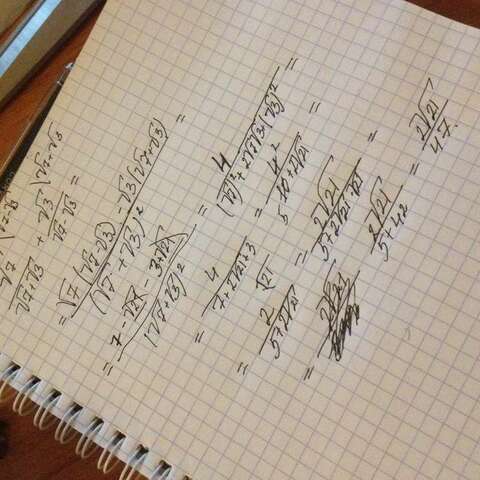 √7/(√7+√3) + √3(√7-√3)/(√7-√3) =
= (√7(√7-√3) - √3(√7+√3))/(√7+√3)² =
= (7-√21-3+√21)/(√7+√3)² = 4/((√7)²+2√7√3+(√3)²) =
= 4/(7+2√21+3) = 4²/(10+2√21) =
5
= 2/(5+2√21) = 2√21/(5+2√21·√21) =
= 2√21/(5+42) = 2√21/47.